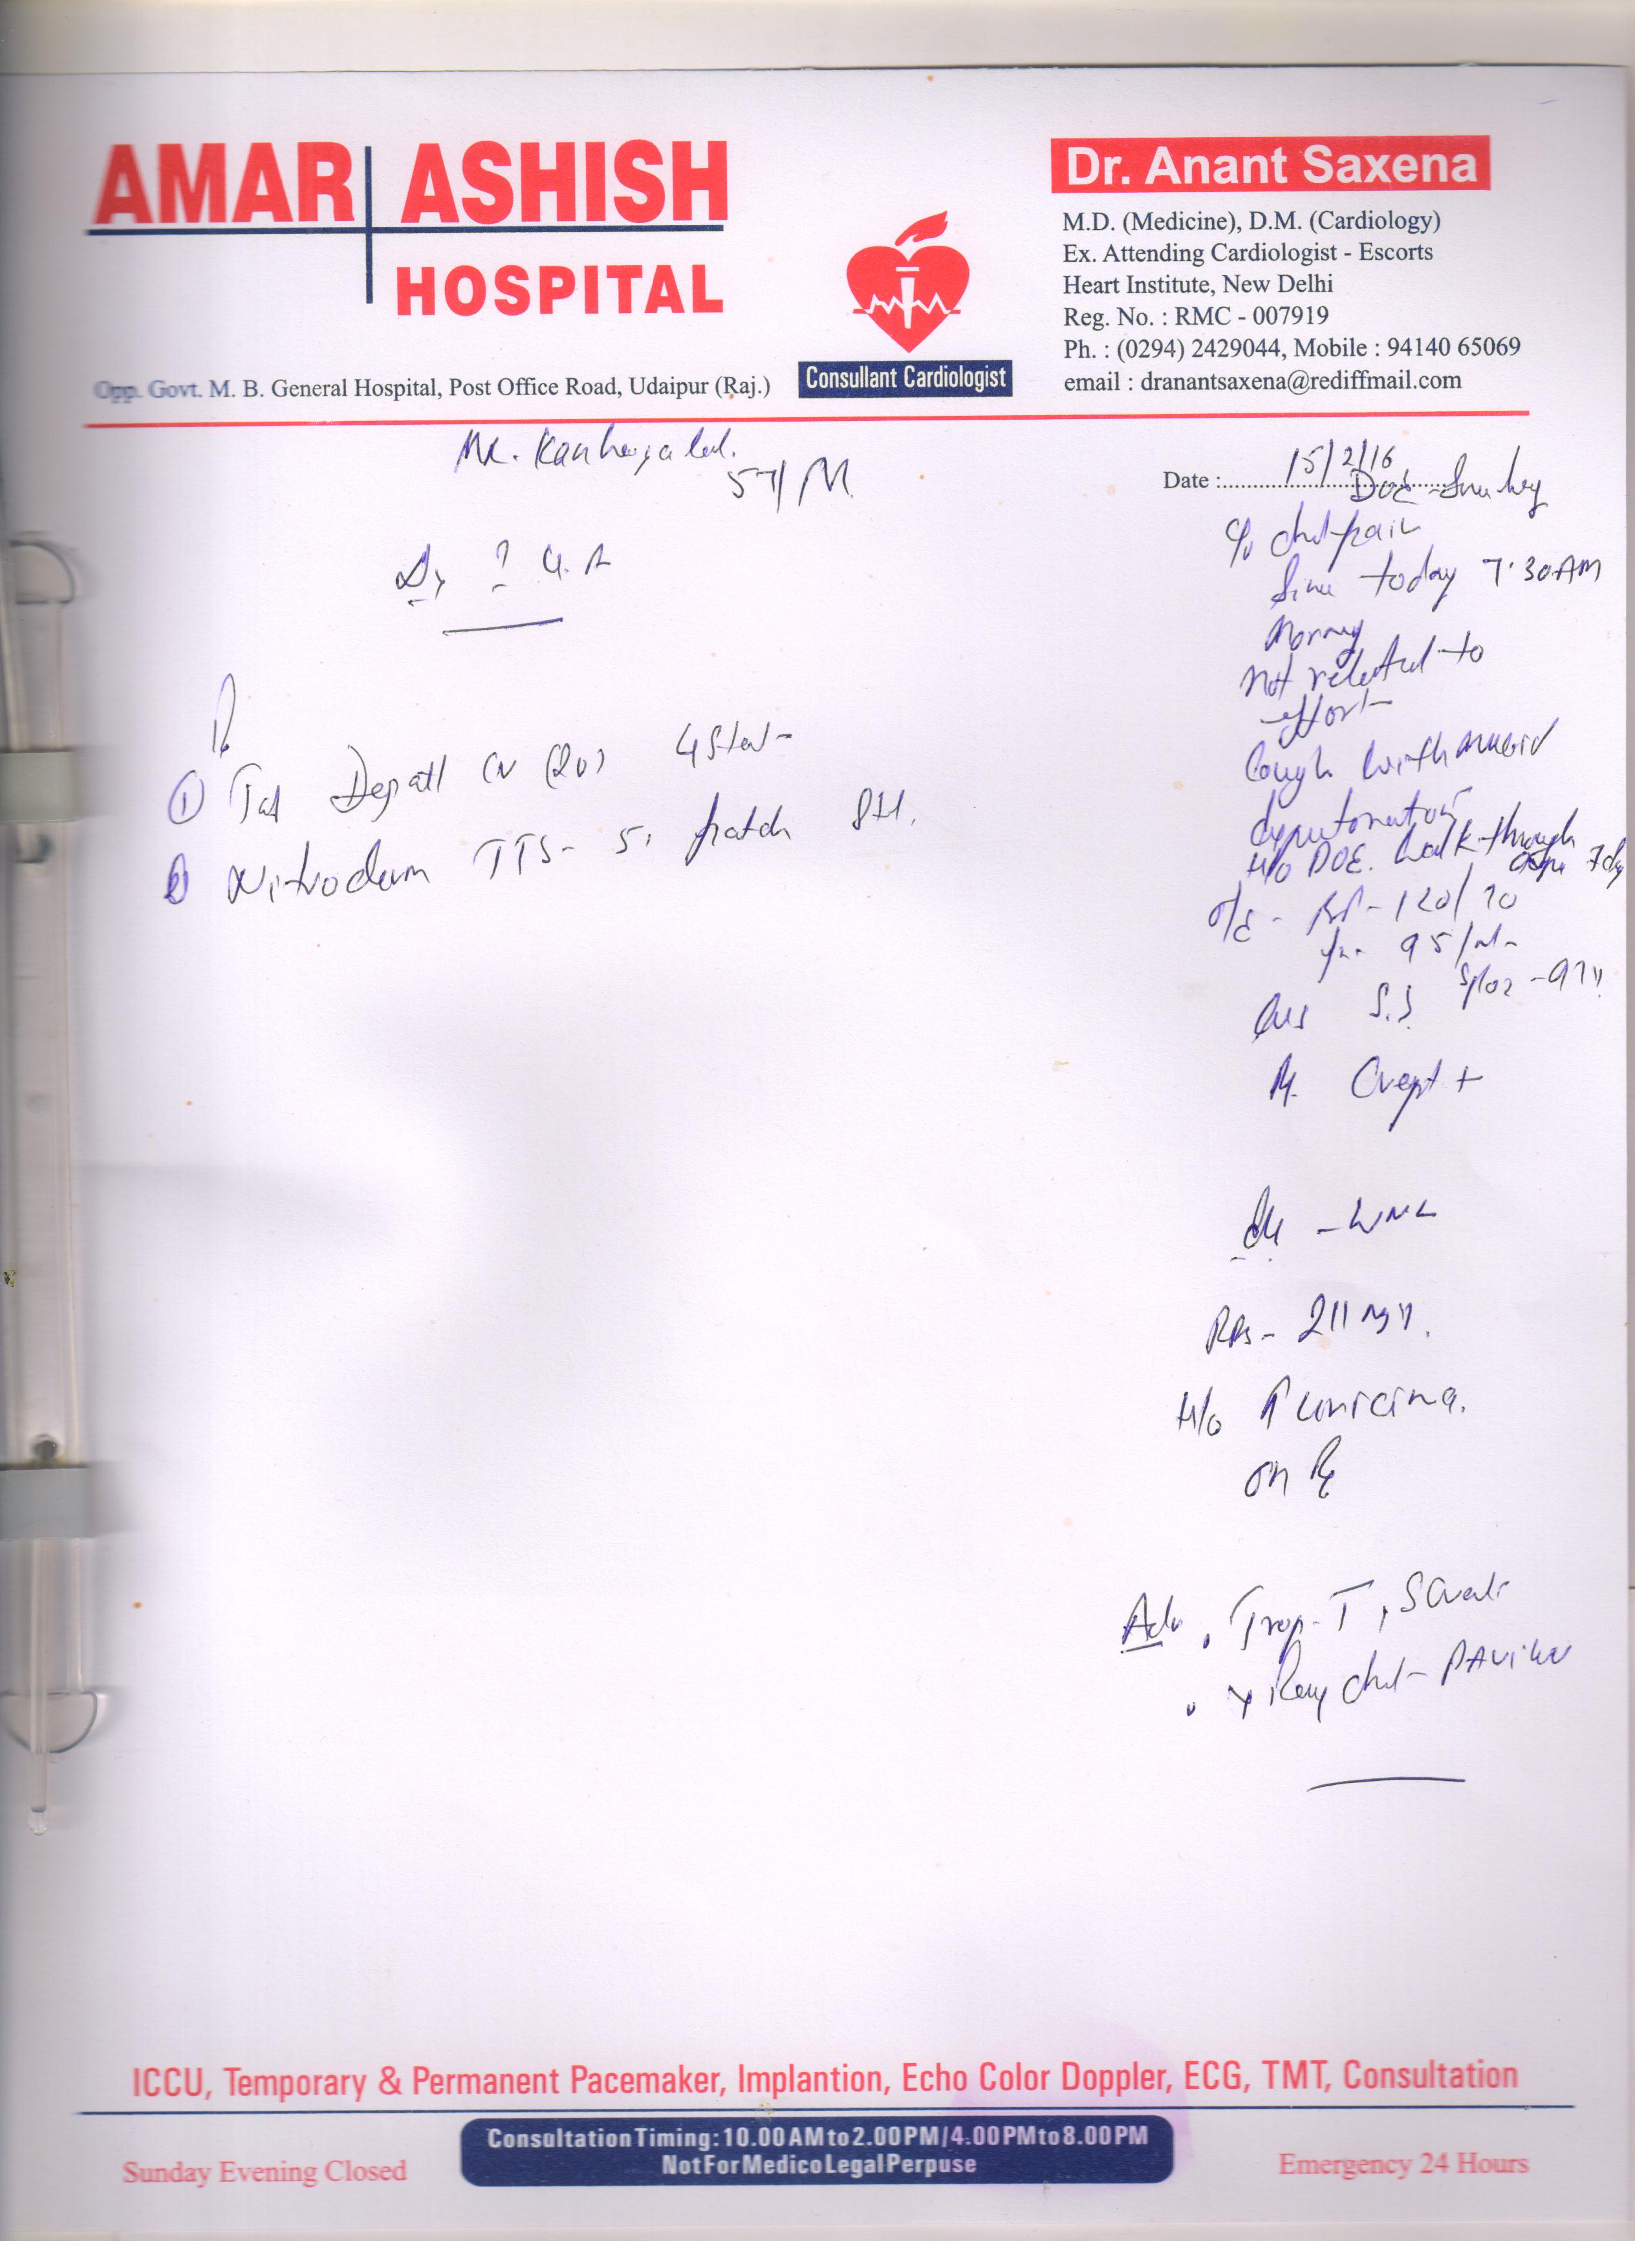 AMAR ASHISH
HOSPITAL
Opp. Govt. M. B. General Hospital, Post Office Road, Udaipur (Raj.)
Consullant Cardiologist
Dr. Anant Saxena
M.D. (Medicine), D.M. (Cardiology)
Ex. Attending Cardiologist - Escorts
Heart Institute, New Delhi
Reg. No. : RMC - 007919
Ph. : (0294) 2429044, Mobile : 94140 65069
email : dranantsaxena@rediffmail.com
Mr. Kanheyalal.
57/M
Date : 15/2/16
c/o chest pain
Since today 7.30AM
Morning
not related to
effort
Cough with mucoid
expectoration
H/o DOE. Walk through
O/E - BP - 120/70
95/m
SpO2 - 97%
S.S
Crept +
- WNL
RBS - 211 mg%.
H/o
on Rx
Adv . Trop-T, S Creat
. X Ray chest - PA View
Dx ? U.A
Rx
① Tab Deplatt CV (20) 4 Stat
② Nitroderm TTS - 5 patch
ICCU, Temporary & Permanent Pacemaker, Implantion, Echo Color Doppler, ECG, TMT, Consultation
Consultation Timing: 10.00 AM to 2.00 PM / 4.00 PM to 8.00 PM
Not For Medico Legal Perpuse
Sunday Evening Closed
Emergency 24 Hours